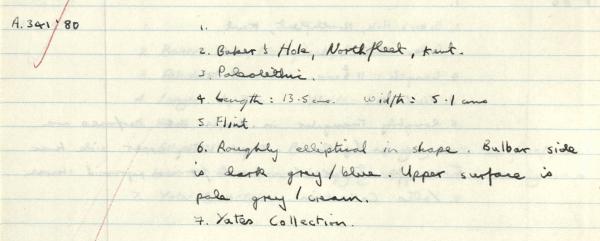 A.341.80
1.
2. Baker's Hole, Northfleet, Kent.
3. Paleolithic.
4. Length: 13.5 cms. Width: 5.1 cms
5. Flint.
6. Roughly elliptical in shape. Bulbar side
is dark grey/blue. Upper surface is
pale grey/cream.
7. Yates Collection.